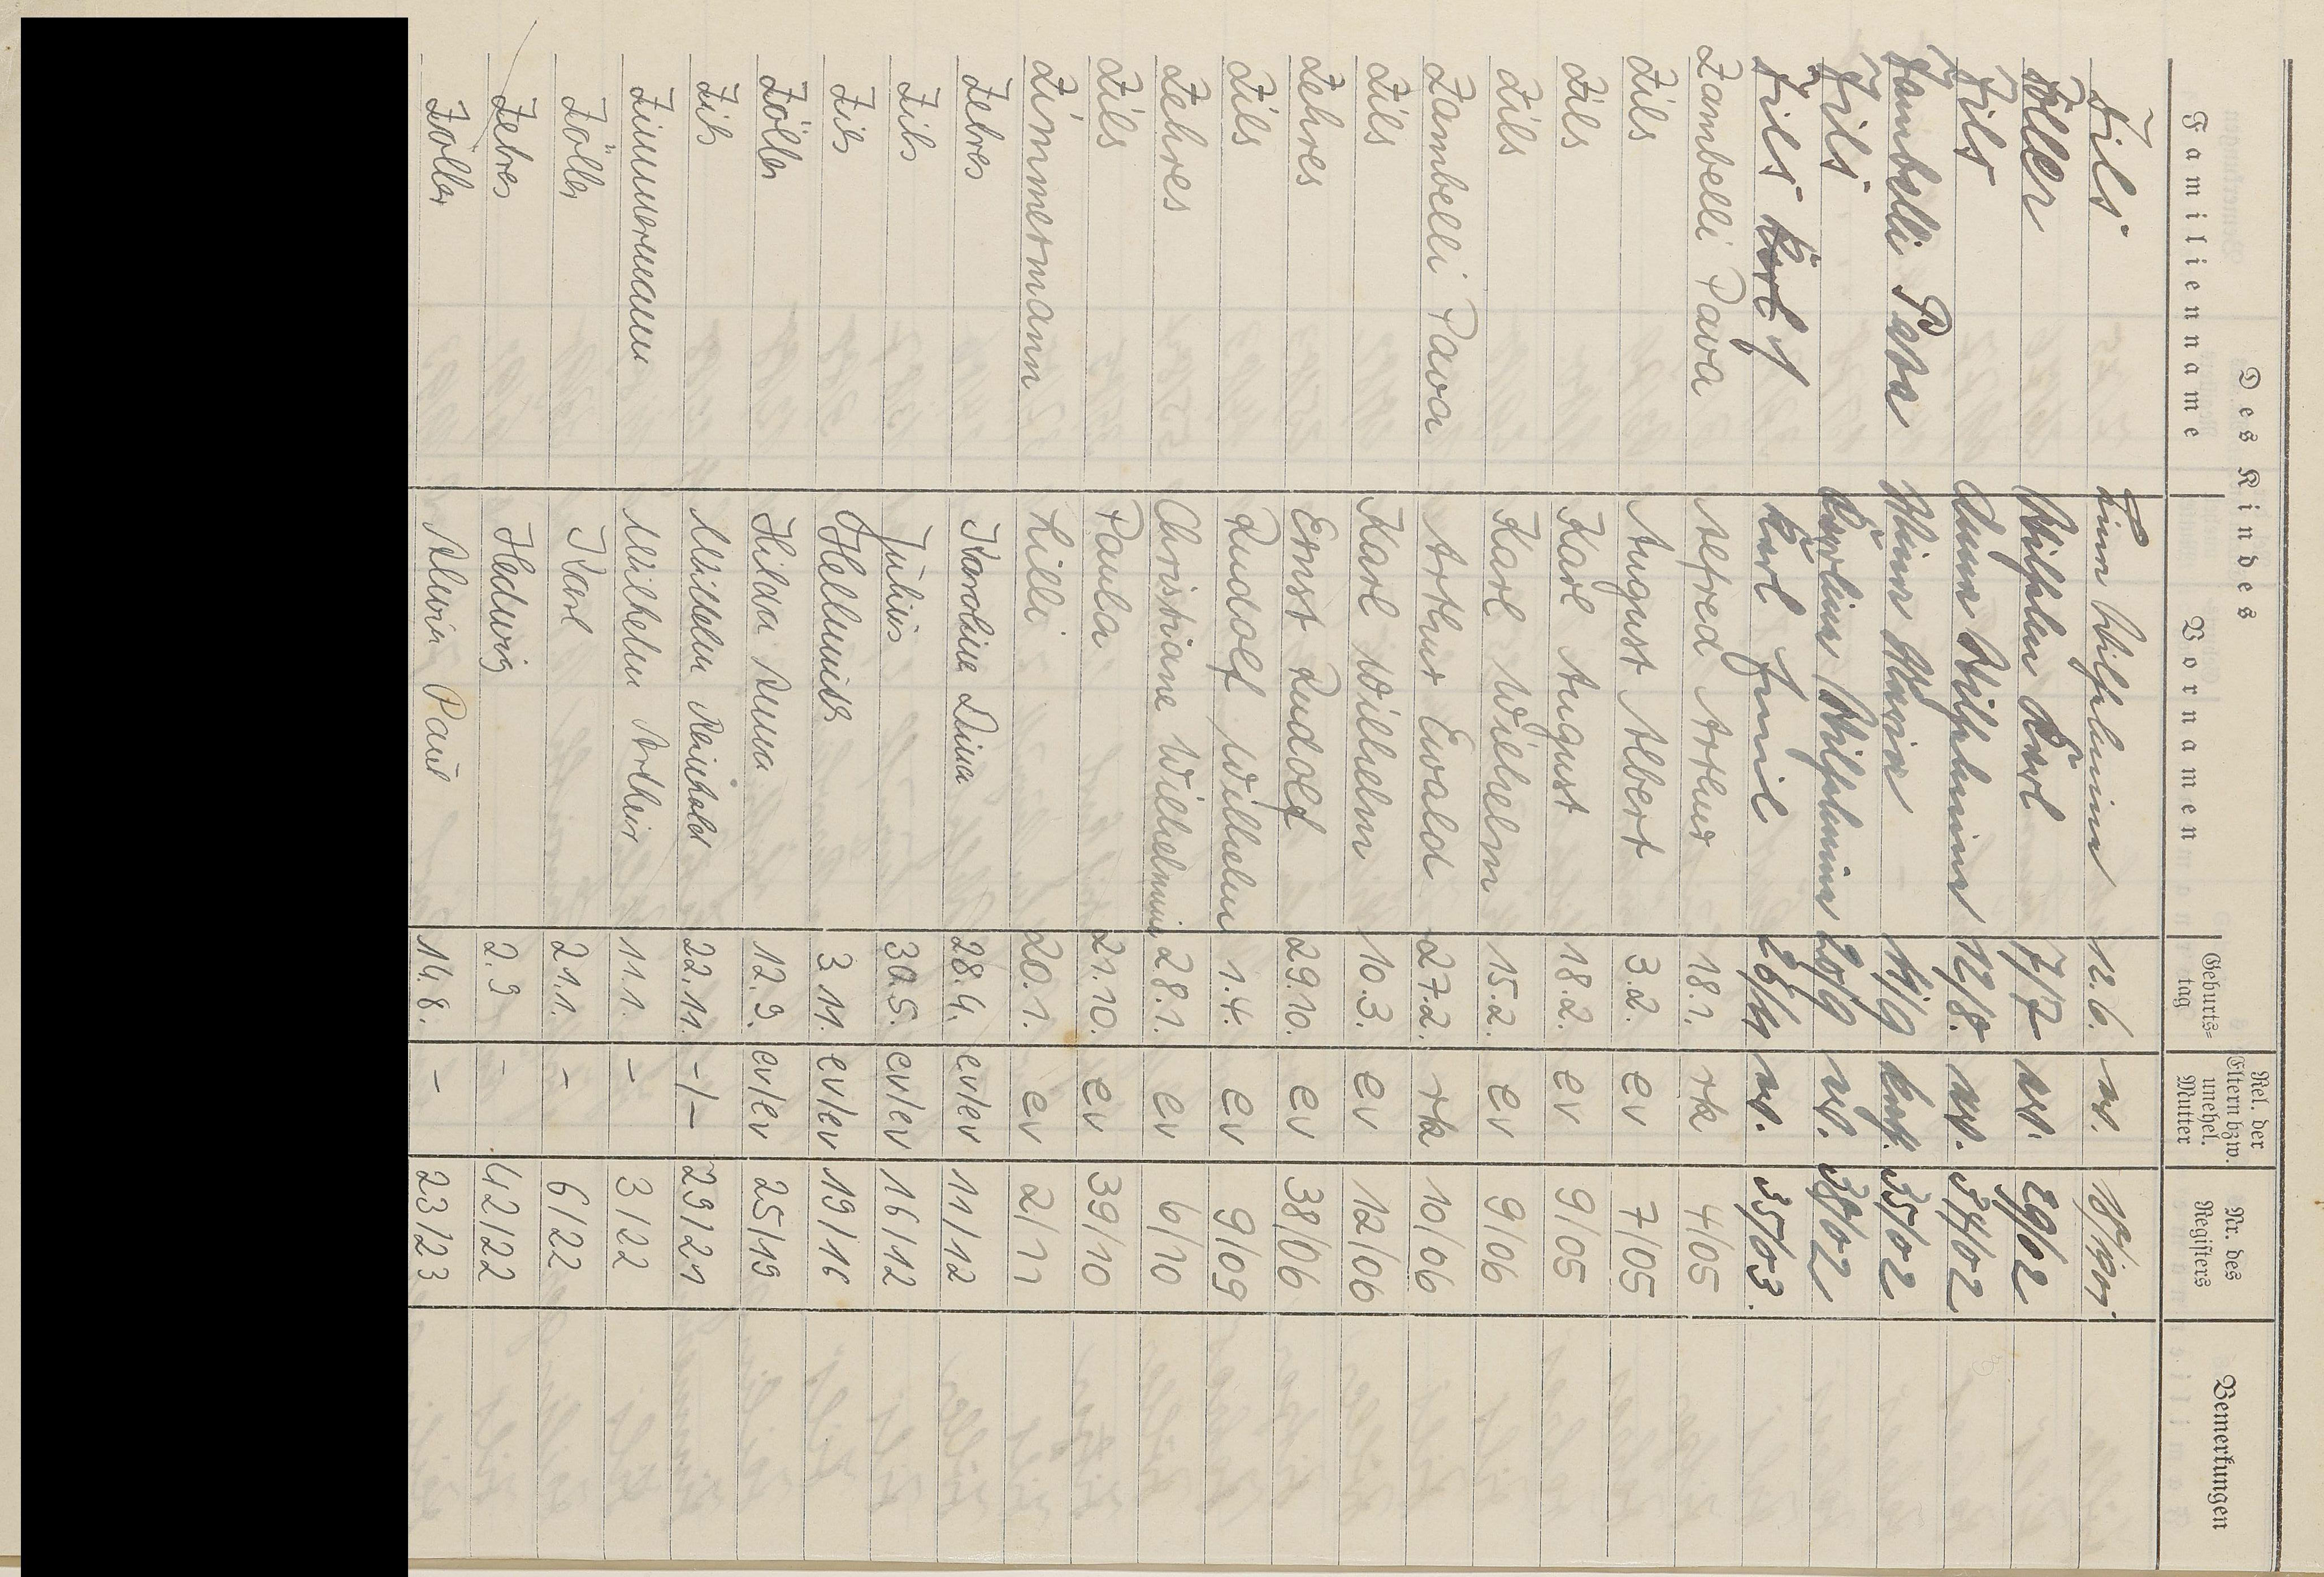 Des Kindes
Familienname Vornamen Geburts=tag Rel. der Eltern bzw. unehel. Mutter Nr. des Registers Bemerkungen
Zils Lina Wilhelmine 12.6. ev. 18/1901
Zöller Wilhelm Karl 7/7 ev. 29/02
Zils Anna Wilhelmine 12/8. ev. 34/02
Zambelli Pava Anna Maria 19/9 kath. 35/02
Zils Karoline Wilhelmine 20/9 ev. 38/02
Zils Karl Emil 26/11 ev. 35/03.
Zambelli Pava Alfred Arthur 18.1. rk 4/05
Zils August Albert 3.2. ev 7/05
Zils Karl August 18.2. ev 9/05
Zils Karl Wilhelm 15.2. ev 9/06
Zambelli Pava Arthur Ewald 27.2. rk 10/06
Zils Karl Wilhelm 10.3. ev 12/06
Zehres Ernst Rudolf 29.10. ev 38/06
Zils Rudolf Wilhelm 1.4. ev 9/09
Zehres Christiane Wilhelmine 28.1. ev 6/10
Zils Paula 21.10. ev 39/10
Zimmermann Lilli 20.1. ev 2/11
Zehres Karoline Lina 28.4. ev/ev 11/12
Zils Julius 30.5. ev/ev 16/12
Zils Hellmuth 3.11. ev/ev 19/16
Zöller Hilda Anna 12.9. ev/ev 25/19
Zils Wilhelm Reinhold 22.11. -/- 29/21
Zimmermann Wilhelm Arthur 11.1. - 3/22
Zöller Karl 21.1. - 6/22
Zehres Hedwig 2.9 - 42/22
Zöller Alwin Paul 14.8. - 23/23